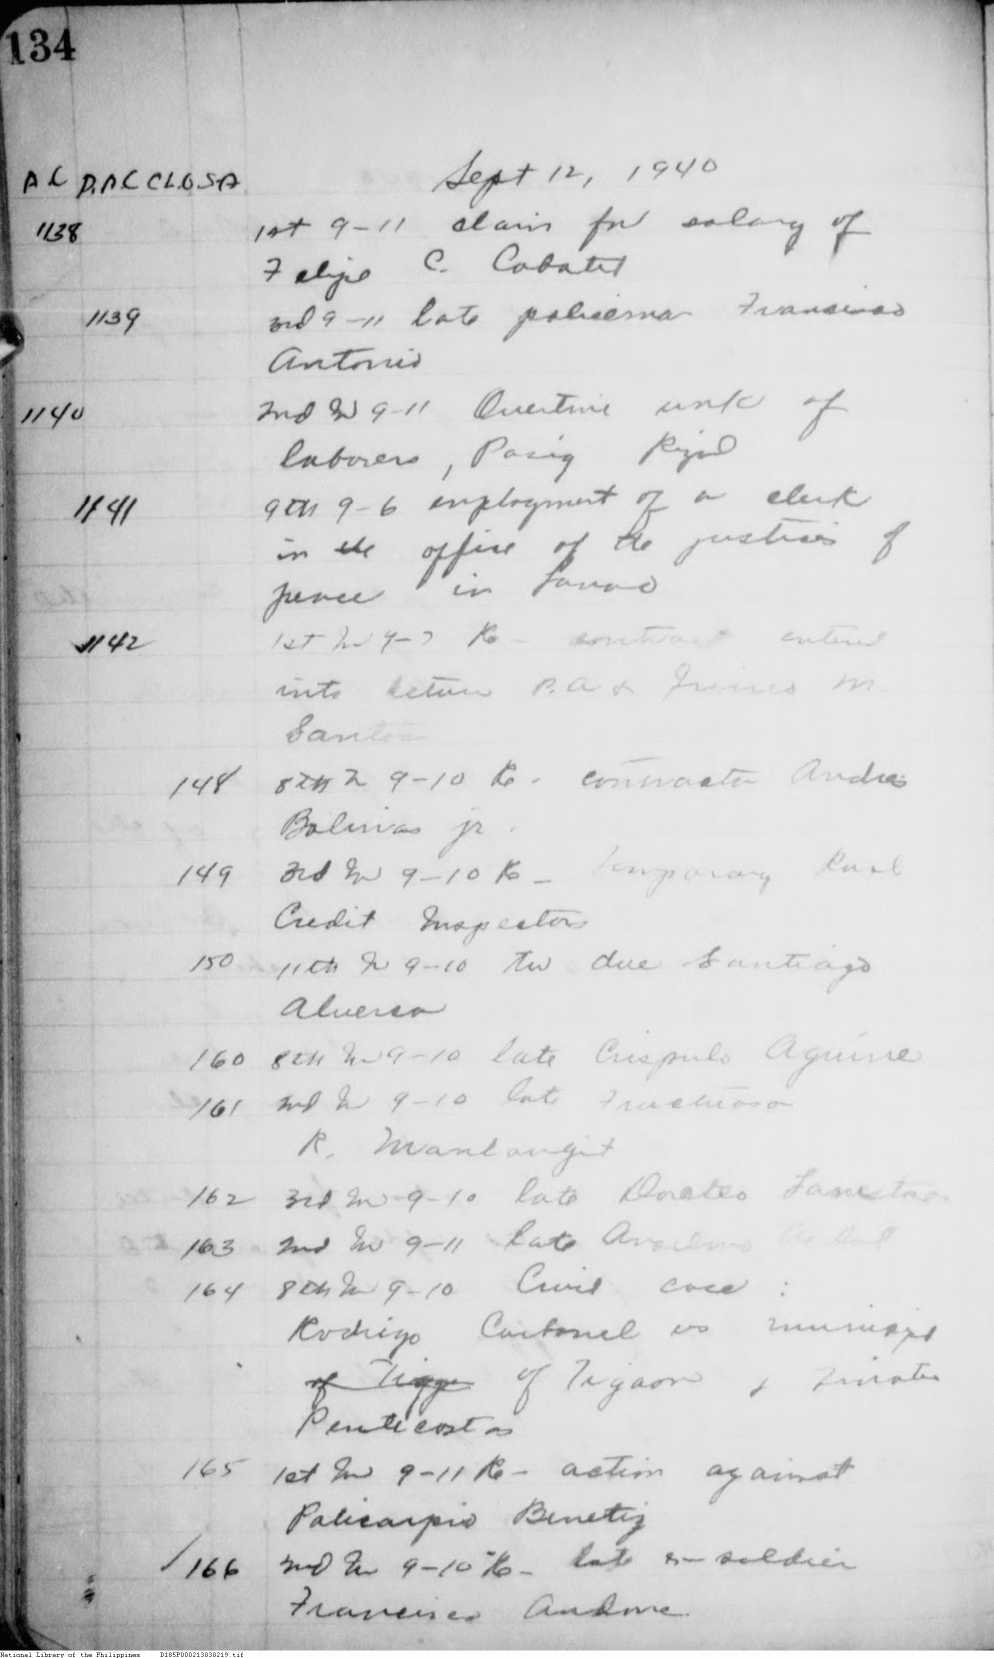 134
AC D.AC CLOSA Sept 12, 1940
1138 1st 9-11 claim for salary of
Felipe C. Cabates
1139 3rd 9-11 late policeman Francisco
Antonio
1140 2nd In 9-11 Overtime work of
laborers, Pasig Rizal
1141 9th 9-6 employment of a clerk
in the office of the justices of
peace in Lanao
1142 1st In 9-7 Re - contract entered
into between P.A &
Santos
148 8th In 9-10 Re - contractor Andres
Bolinas jr.
149 3rd In 9-10 Re - Temporary Rural
Credit Inspectors
150 11th In 9-10 due Santiago
160 8th In 9-10 late Crispulo Aguirre
161 2nd In 9-10 late Fructuoso
R. Manlangit
162 3rd In 9-10 late
163 2nd In 9-11 late Anselmo
164 8th In 9-10 Civil case :
Rodrigo Carbonel vs municipal
of Tigaon &
Pentecostes
165 1st In 9-11 Re - action against
Policarpio
166 2nd In 9-10 Re - late ex-soldier
Francisco
National Library of the Philippines D185P000213030219.tif